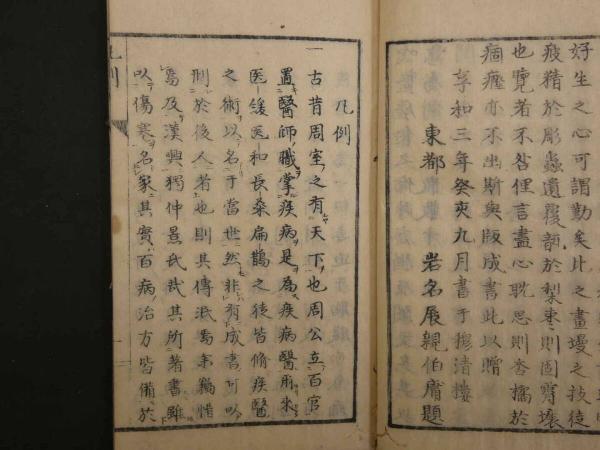 好生之心可謂勤矣比之畫墁之技徒
疲精於彫蟲遺覆瓿於梨棗則固霄壤
也覽者不咎俚言盡心耽思則沓擩於
痼癧亦不出斯矣版成書此以贈
享和三年癸亥九月書于穆清樓
東都 岩名展親伯膚題
凡例
一古昔周室之有天下也周公立百官
置醫師職掌疾病是爲疾病醫所來
醫緩医和長桑扁鵲之徒皆脩疾醫
之術以名于當世然非有成書可以
刑於後人者也則其傳泯焉余竊惜
焉及漢興獨仲景氏哉其所著書雖
以傷寒名家其實百病治方皆備於
凡例